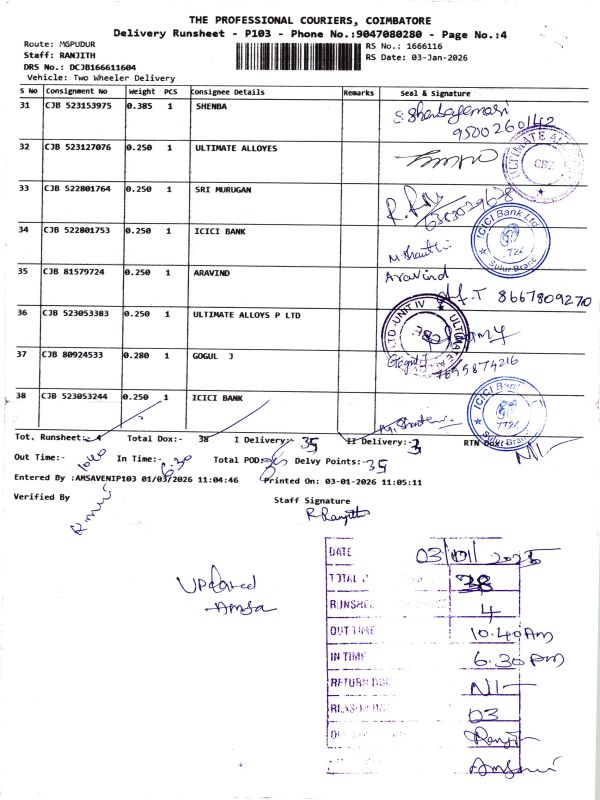 THE PROFESSIONAL COURIERS, COIMBATORE
Delivery Runsheet - P103 - Phone No.:9047080280 - Page No.:4
Route: MGPUDUR
RS No.: 1666116
Staff: RANJITH
RS Date: 03-Jan-2026
DRS No.: DCJB166611604
Vehicle: Two Wheeler Delivery
S No Consignment No Weight PCS Consignee Details Remarks Seal & Signature
31 CJB 523153975 0.385 1 SHENBA
9500260142
32 CJB 523127076 0.250 1 ULTIMATE ALLOYES
33 CJB 522801764 0.250 1 SRI MURUGAN
34 CJB 522801753 0.250 1 ICICI BANK
ICICI Bank Ltd
Sulur Branc
35 CJB 81579724 0.250 1 ARAVIND
Aravind
8667809270
36 CJB 523053383 0.250 1 ULTIMATE ALLOYS P LTD
LTD-UNIT IV ULTIMATE
37 CJB 80924533 0.280 1 GOGUL J
Gogul J
7695874216
38 CJB 523053244 0.250 1 ICICI BANK
ICICI Ban
Tot. Runsheet:- 4 Total Dox:- 38 I Delivery:- 35 II Delivery:- 3 RTN Dox: NIL
Out Time:- 1040 In Time:- 6.30 Total POD: Delvy Points:- 35
Entered By :AMSAVENIP103 01/03/2026 11:04:46 Printed On: 03-01-2026 11:05:11
Verified By Staff Signature
R Ranjith
Updated
Amsa
DATE 03/01/2026
TOTAL 38
RUNSHEE 4
OUT TIME 10.40 Am
IN TIME 6.30 pm
RETURN DOX NIL
REASON 03
Ranjith
Amsavni